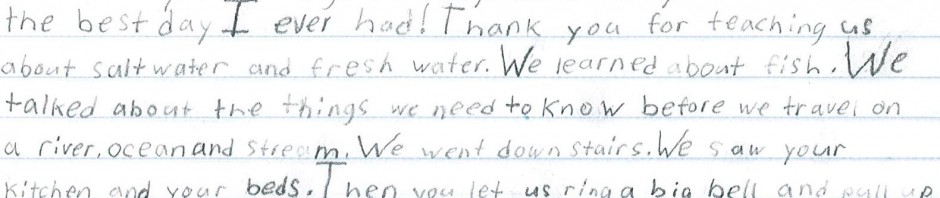 the best day I ever had! Thank you for teaching us
about salt water and fresh water. We learned about fish. We
talked about the things we need to know before we travel on
a river, ocean and stream. We went down stairs. We saw your
kitchen and your beds. Then you let us ring a big bell and pull up